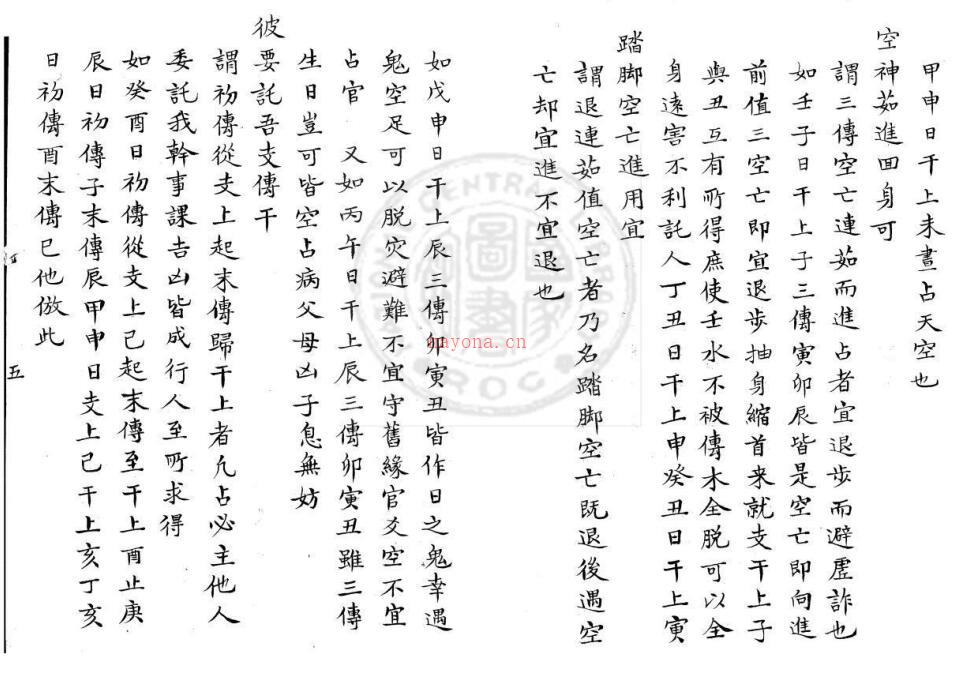 甲申日干上未晝占天空也
空神茹進回身可
謂三傳空亡連茹而進占者宜退步而避虛詐也
如壬子日干上子三傳寅卯辰皆是空亡即向進
前值三空亡即宜退步抽身縮首来就支干上子
與丑互有所得庶使壬水不被傳木全脱可以全
身遠害不利託人丁丑日干上申癸丑日干上寅
踏脚空亡進用宜
謂退連茹值空亡者乃名踏脚空亡既退後遇空
亡却宜進不宜退也
如戊申日干上辰三傳卯寅丑皆作日之鬼幸遇
鬼空足可以脱灾避難不宜守舊緣官爻空不宜
占官 又如丙午日干上辰三傳卯寅丑雖三傳
生日豈可皆空占病父母凶子息無妨
彼要託吾支傳干
謂初傳從支上起末傳歸干上者凢占必主他人
委託我幹事課吉凶皆成行人至所求得
如癸酉日初傳從支上巳起末傳至干上酉止庚
辰日初傳子末傳辰甲申日支上巳干上亥丁亥
日初傳酉末傳巳他倣此
五
NATIONAL CENTRAL LIBRARY
ROC
nayona.cn